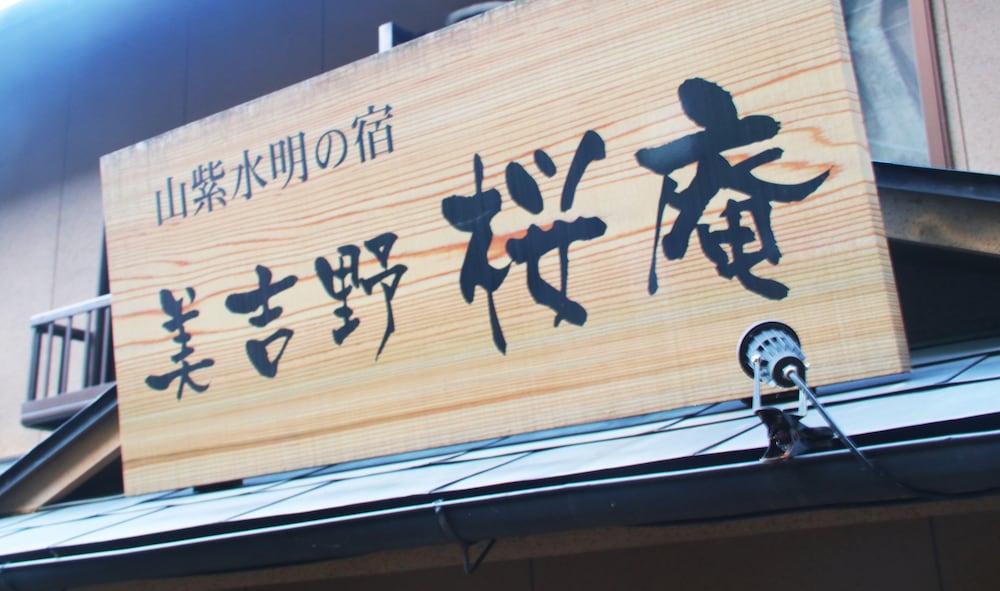 山紫水明の宿
美吉野桜庵